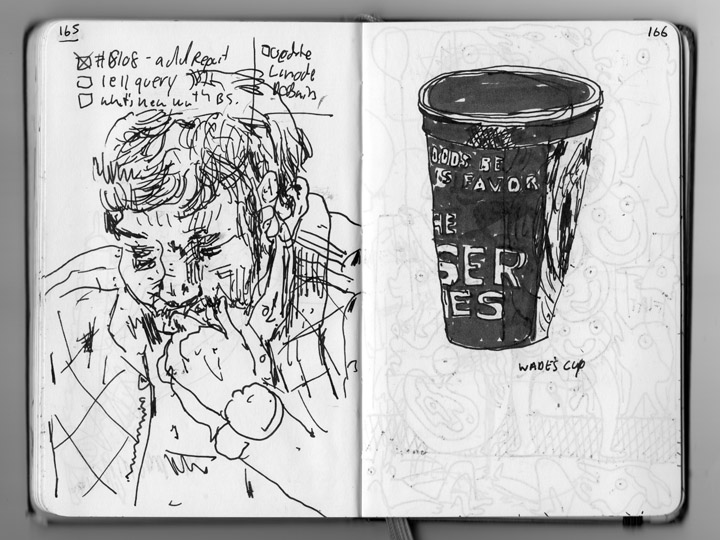 165
#8108 - add Repait
tell query
what's new with BS.
update
Linode
166
ODDS BE
S FAVOR
HE
GER
ES
WADE'S CUP